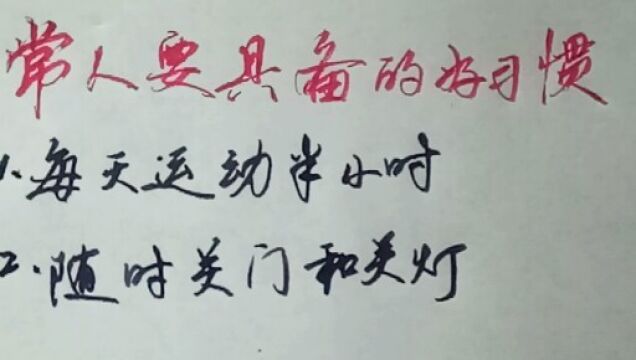 常人要具备的好习惯
1.每天运动半小时
2.随时关门和关灯